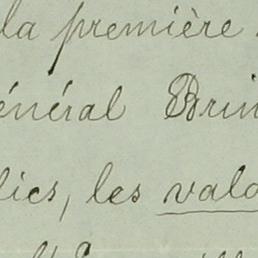 la première
énéral Brin
lics, les vala